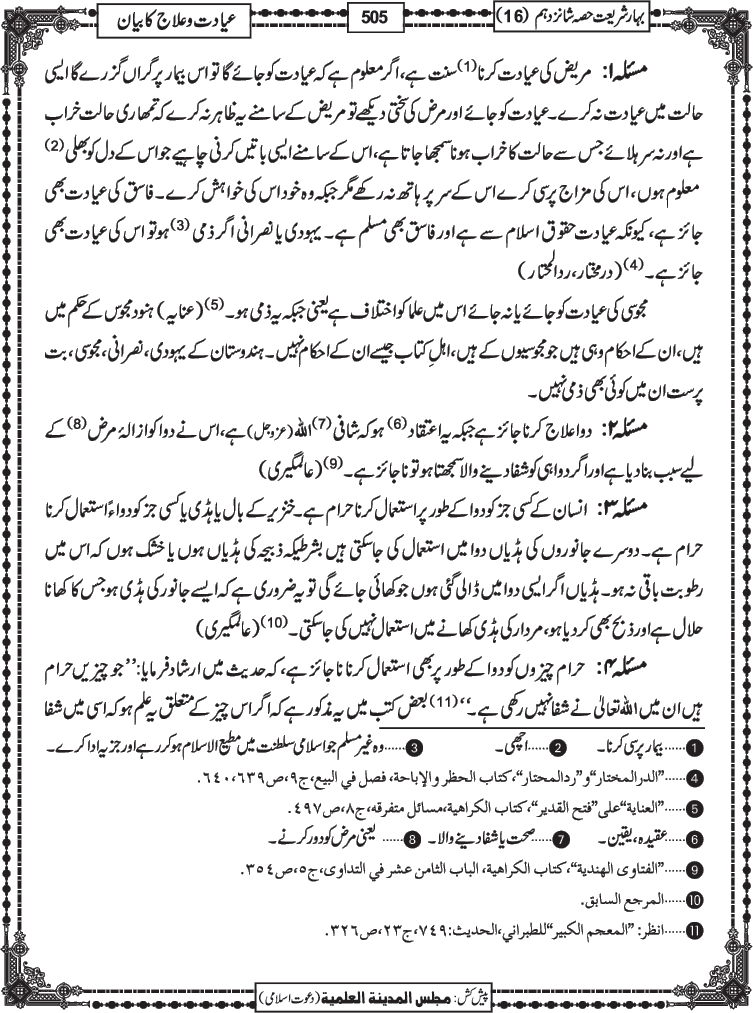 بہارِ شریعت حصہ شانزدہم (16)
505
عیادت و علاج کا بیان
مسئلہ ۱: مریض کی عیادت کرنا (1) سنت ہے، اگر معلوم ہے کہ عیادت کو جائے گا تو اس بیمار پر گراں گزرے گا ایسی
حالت میں عیادت نہ کرے۔ عیادت کو جائے اور مرض کی سختی دیکھے تو مریض کے سامنے یہ ظاہر نہ کرے کہ تمھاری حالت خراب
ہے اور نہ سر ہلائے جس سے حالت کا خراب ہونا سمجھا جاتا ہے، اس کے سامنے ایسی باتیں کرنی چاہیے جو اس کے دل کو بھلی (2)
معلوم ہوں، اس کی مزاج پرسی کرے اس کے سر پر ہاتھ نہ رکھے مگر جبکہ وہ خود اس کی خواہش کرے۔ فاسق کی عیادت بھی
جائز ہے، کیونکہ عیادت حقوق اسلام سے ہے اور فاسق بھی مسلم ہے۔ یہودی یا نصرانی اگر ذمی (3) ہو تو اس کی عیادت بھی
جائز ہے۔ (4) (درمختار، ردالمحتار)
مجوسی کی عیادت کو جائے یا نہ جائے اس میں علما کو اختلاف ہے یعنی جبکہ یہ ذمی ہو۔ (5) (عنایہ) ہنود مجوس کے حکم میں
ہیں، ان کے احکام وہی ہیں جو مجوسیوں کے ہیں، اہلِ کتاب جیسے ان کے احکام نہیں۔ ہندوستان کے یہودی، نصرانی، مجوسی، بت
پرست ان میں کوئی بھی ذمی نہیں۔
مسئلہ ۲: دوا علاج کرنا جائز ہے جبکہ یہ اعتقاد (6) ہو کہ شافی (7) اللہ (عزوجل) ہے، اس نے دوا کو ازالۂ مرض (8) کے
لیے سبب بنا دیا ہے اور اگر دوا ہی کو شفا دینے والا سمجھتا ہو تو نا جائز ہے۔ (9) (عالمگیری)
مسئلہ ۳: انسان کے کسی جز کو دوا کے طور پر استعمال کرنا حرام ہے۔ خنزیر کے بال یا ہڈی یا کسی جز کو دواءً استعمال کرنا
حرام ہے۔ دوسرے جانوروں کی ہڈیاں دوا میں استعمال کی جاسکتی ہیں بشرطیکہ ذبیحہ کی ہڈیاں ہوں یا خشک ہوں کہ اس میں
رطوبت باقی نہ ہو۔ ہڈیاں اگر ایسی دوا میں ڈالی گئی ہوں جو کھائی جائے گی تو یہ ضروری ہے کہ ایسے جانور کی ہڈی ہو جس کا کھانا
حلال ہے اور ذبح بھی کر دیا ہو، مردار کی ہڈی کھانے میں استعمال نہیں کی جاسکتی۔ (10) (عالمگیری)
مسئلہ ۴: حرام چیزوں کو دوا کے طور پر بھی استعمال کرنا نا جائز ہے، کہ حدیث میں ارشاد فرمایا: ’’جو چیزیں حرام
ہیں ان میں اللہ تعالیٰ نے شفا نہیں رکھی ہے۔‘‘ (11) بعض کتب میں یہ مذکور ہے کہ اگر اس چیز کے متعلق یہ علم ہو کہ اسی میں شفا
1 ......بیمار پرسی کرنا۔ 2 ......اچھی۔ 3 ......وہ غیر مسلم جو اسلامی سلطنت میں مطیع الاسلام ہو کر رہے اور جزیہ ادا کرے۔
4 ......”الدرالمختار“و”ردالمحتار“،کتاب الحظر والإباحة، فصل في البیع،ج۹،ص۶۳۹،۶۴۰.
5 ......”العنایة“علی”فتح القدیر“، کتاب الکراهیة،مسائل متفرقه،ج۸،ص۴۹۷.
6 ......عقیدہ، یقین۔ 7 ......صحت یا شفا دینے والا۔ 8 ......یعنی مرض کو دور کرنے۔
9 ......”الفتاوی الهندیة“،کتاب الکراهیة، الباب الثامن عشر في التداوی،ج۵،ص۳۵۴.
10 ......المرجع السابق.
11 ......انظر: ”المعجم الکبیر“للطبراني،الحدیث:۷۴۹،ج۲۳،ص۳۲۶.
پیش کش: مجلس المدینة العلمیة (دعوت اسلامی)